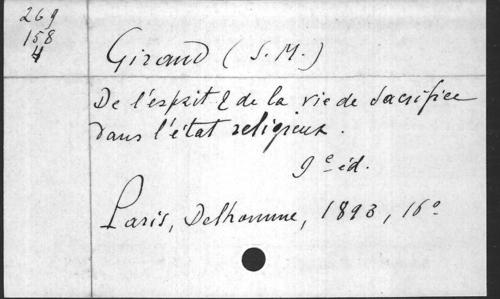 269
158
4
Giraud (S. M.)
De l'esprit & de la vie de sacrifice
dans l'état religieux.
9e éd.
Paris, Delhomme, 1893, 16o